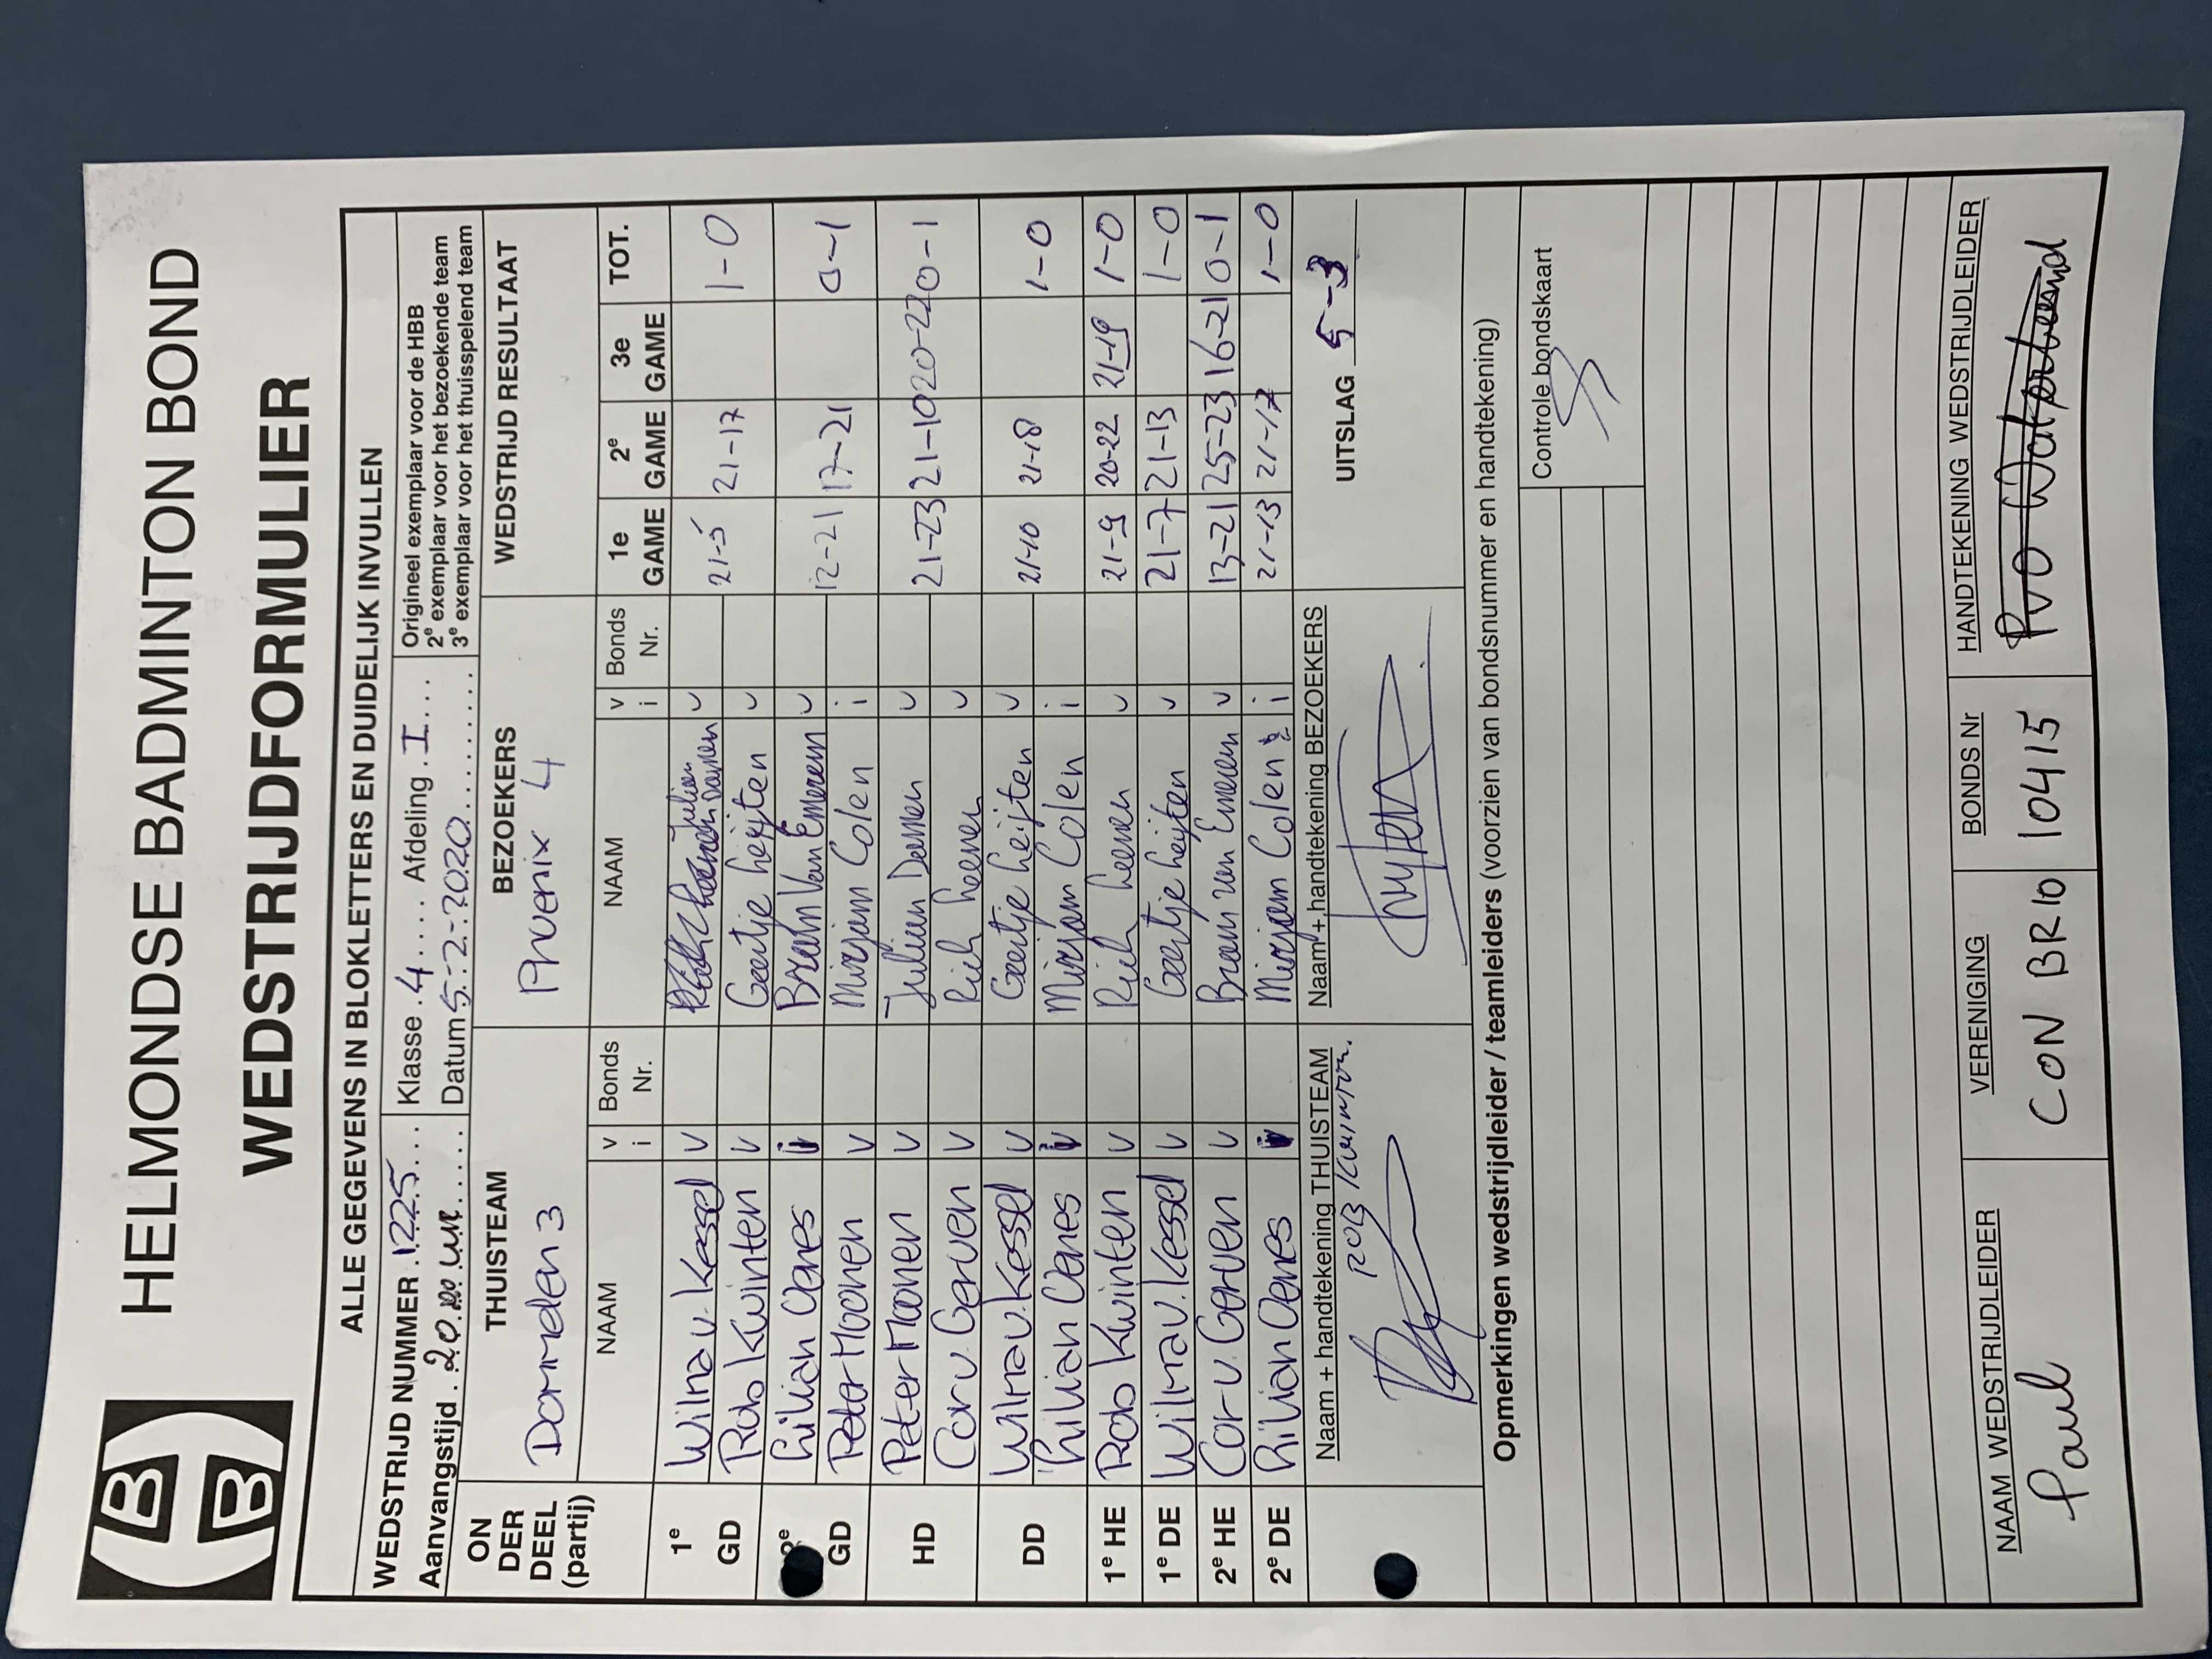 HELMONDSE BADMINTON BOND
WEDSTRIJDFORMULIER
ALLE GEGEVENS IN BLOKLETTERS EN DUIDELIJK INVULLEN
WEDSTRIJD NUMMER .1225... Klasse .4.... Afdeling .I...
Aanvangstijd . 20.00 uur..... Datum 5.-2.-2020.........
Origineel exemplaar voor de HBB
2e exemplaar voor het bezoekende team
3e exemplaar voor het thuisspelend team
ON DER DEEL (partij) THUISTEAM BEZOEKERS WEDSTRIJD RESULTAAT
Dommelen 3 Phoenix 4
NAAM v i Bonds Nr. NAAM v i Bonds Nr. 1e GAME 2e GAME 3e GAME TOT.
1e GD Wilma v. Kessel v Julien Daemen v 21-5 21-17 1-0
Rob Kwinten v Geertje heijten v
2e GD Lilian Oenes i Bram van Emeren v 12-21 17-21 0-1
Peter Moonen v Mirjam Colen i
HD Peter Moonen v Julien Daemen v 21-23 21-10 20-22 0-1
Cor v. Gerven v Rich heenen v
DD Wilma v. Kessel v Geertje heijten v 21-10 21-18 1-0
Lilian Oenes i Mirjam Colen i
1e HE Rob Kwinten v Rich heenen v 21-9 20-22 21-19 1-0
1e DE Wilma v. Kessel v Geertje heijten v 21-7 21-13 1-0
2e HE Cor v. Gerven v Bram van Emeren v 13-21 25-23 16-21 0-1
2e DE Lilian Oenes i Mirjam Colen i 21-13 21-17 1-0
Naam + handtekening THUISTEAM Naam + handtekening BEZOEKERS UITSLAG 5-3
ROB Kwinten.
Opmerkingen wedstrijdleider / teamleiders (voorzien van bondsnummer en handtekening)
Controle bondskaart
NAAM WEDSTRIJDLEIDER VERENIGING BONDS Nr HANDTEKENING WEDSTRIJDLEIDER
Paul CON BRIO 10415